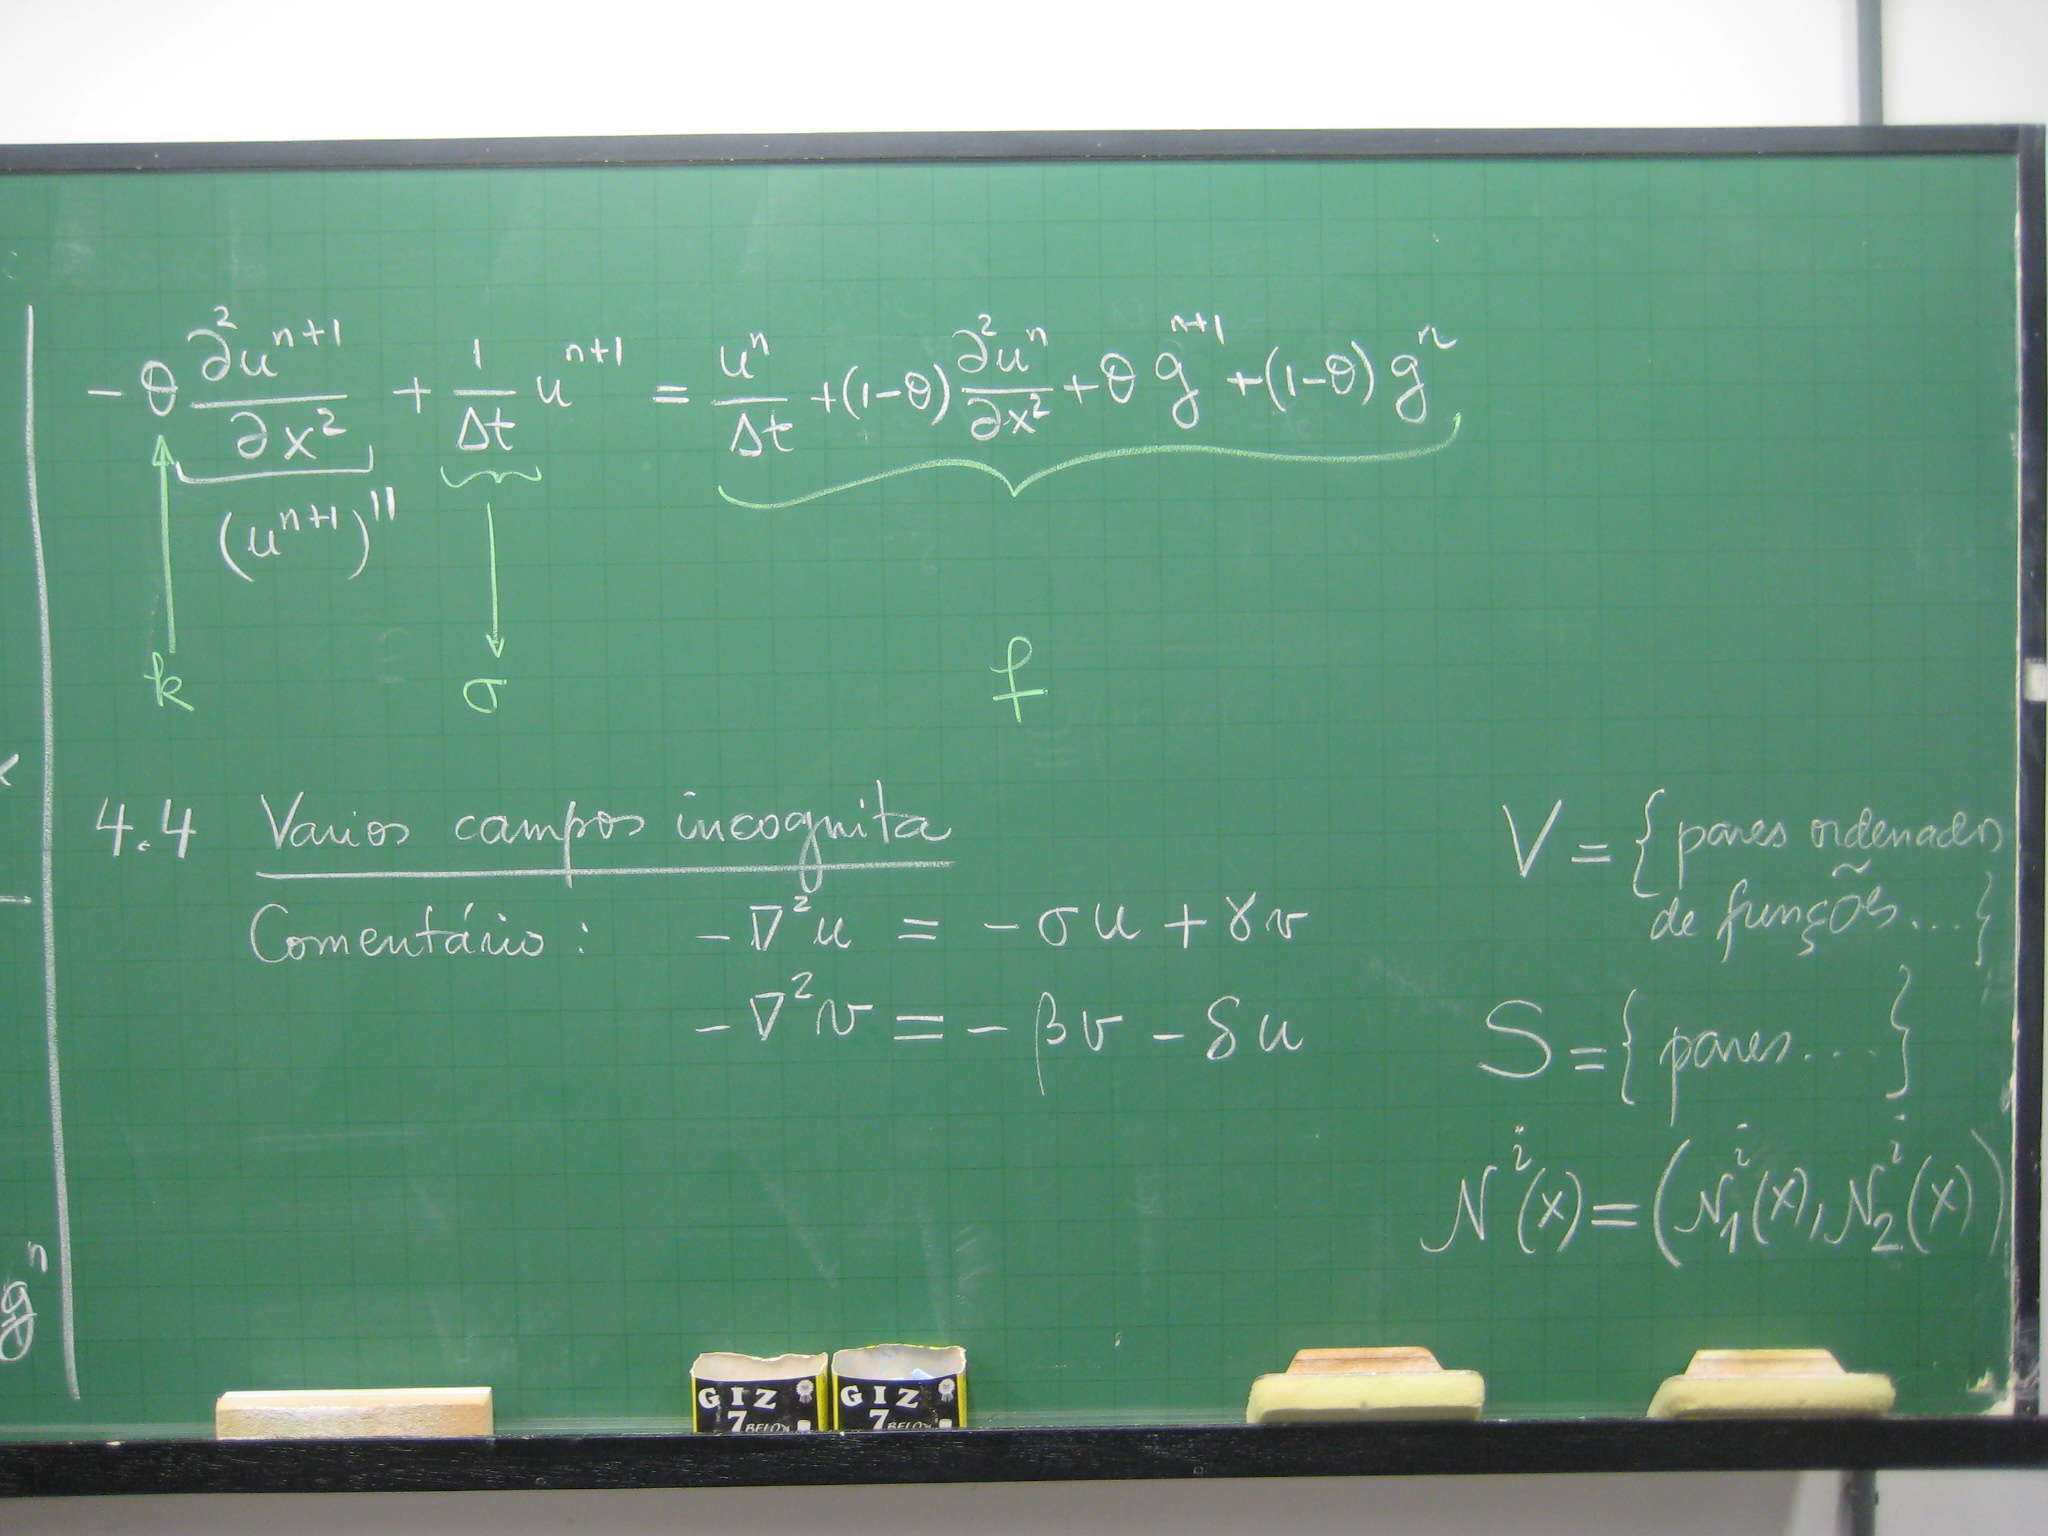 -θ ∂²uⁿ⁺¹/∂x² + 1/Δt uⁿ⁺¹ = uⁿ/Δt + (1-θ) ∂²uⁿ/∂x² + θ gⁿ⁺¹ + (1-θ) gⁿ
(uⁿ⁺¹)''
k σ f
4.4 Varios campos incognita
Comentário: -∇²u = -σu + γv
-∇²v = -βv - δu
V = { pares ordenados
de funções... }
S = { pares... }
Nⁱ(x) = (N₁ⁱ(x), N₂ⁱ(x))
gⁿ
GIZ GIZ
7 BELO 7 BELO